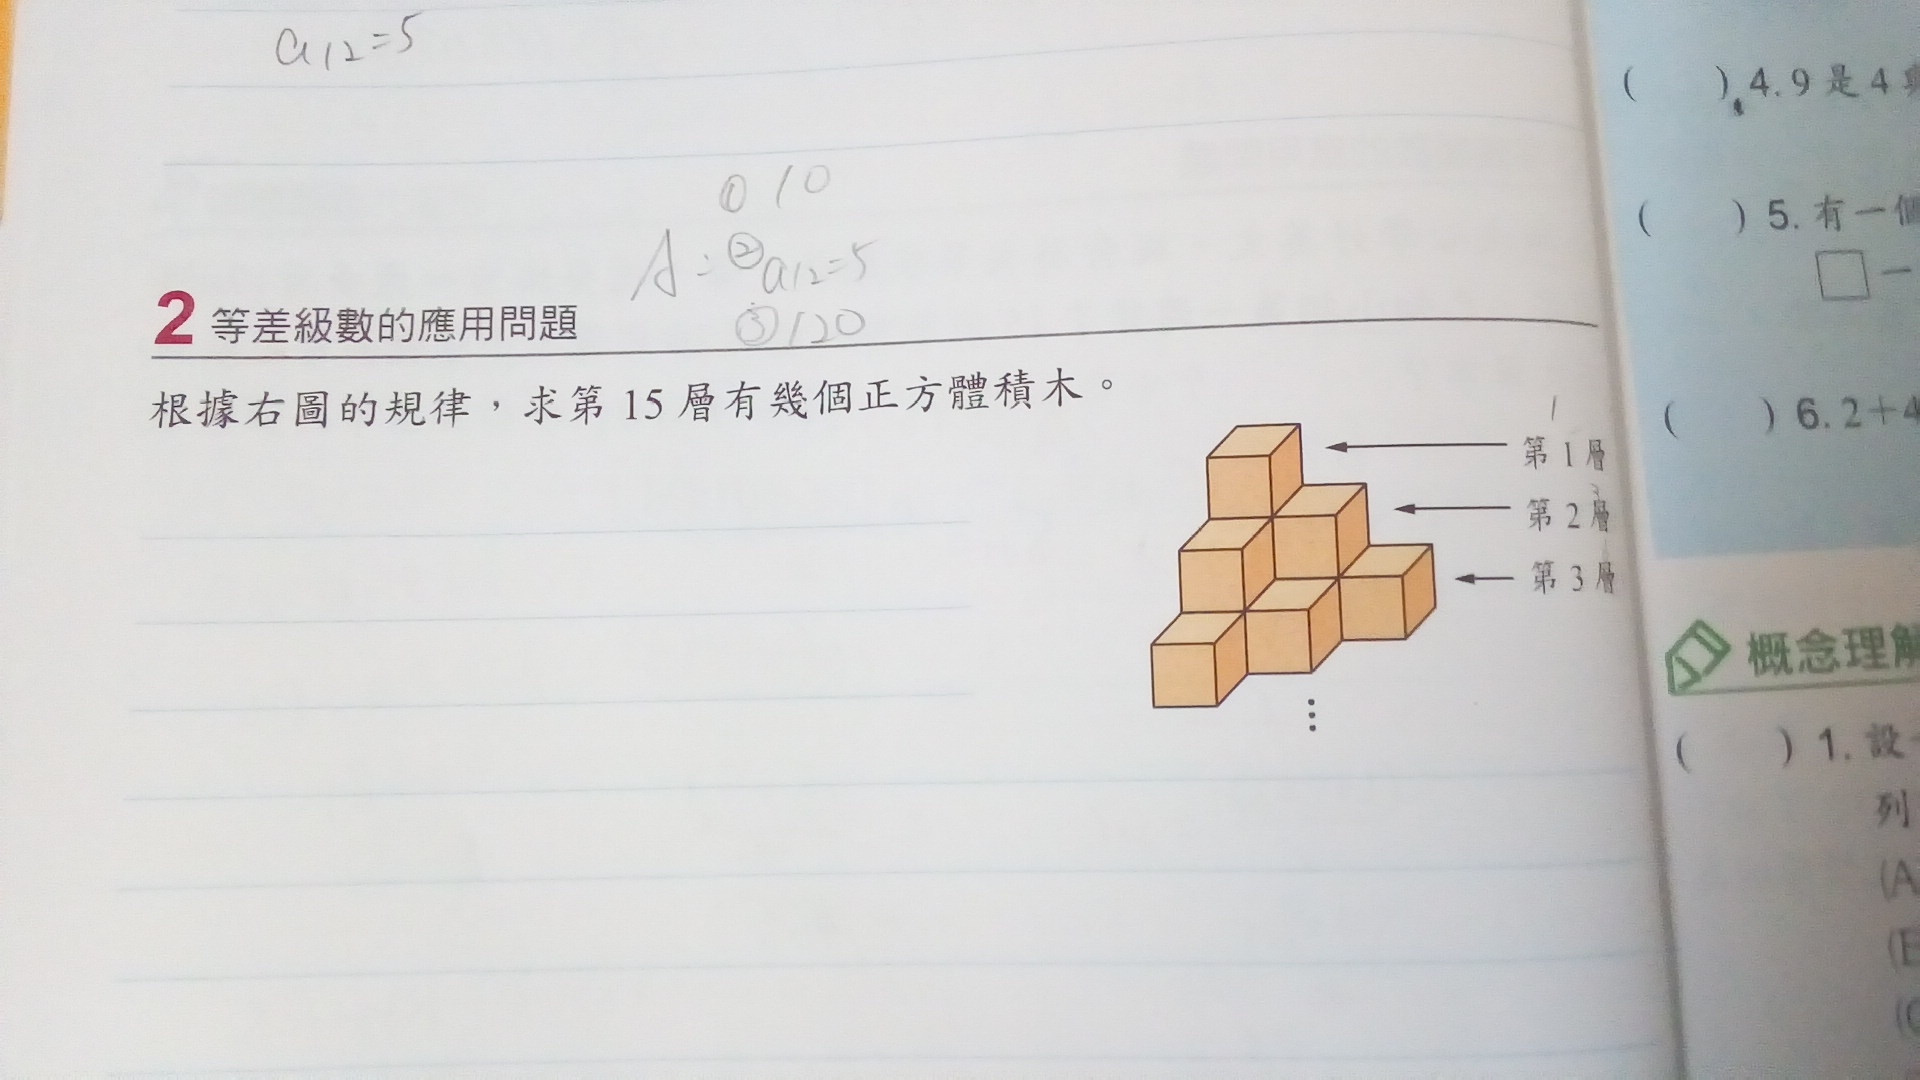 a12=5
① 10
A: ②a12=5
③120
2 等差級數的應用問題
根據右圖的規律，求第 15 層有幾個正方體積木。
1
第 1 層
3
第 2 層
第 3 層
⋮
( ) 4. 9 是 4
( ) 5. 有一個
□－
( ) 6. 2＋4
概念理解
( ) 1. 設
列
(A
(B
(C